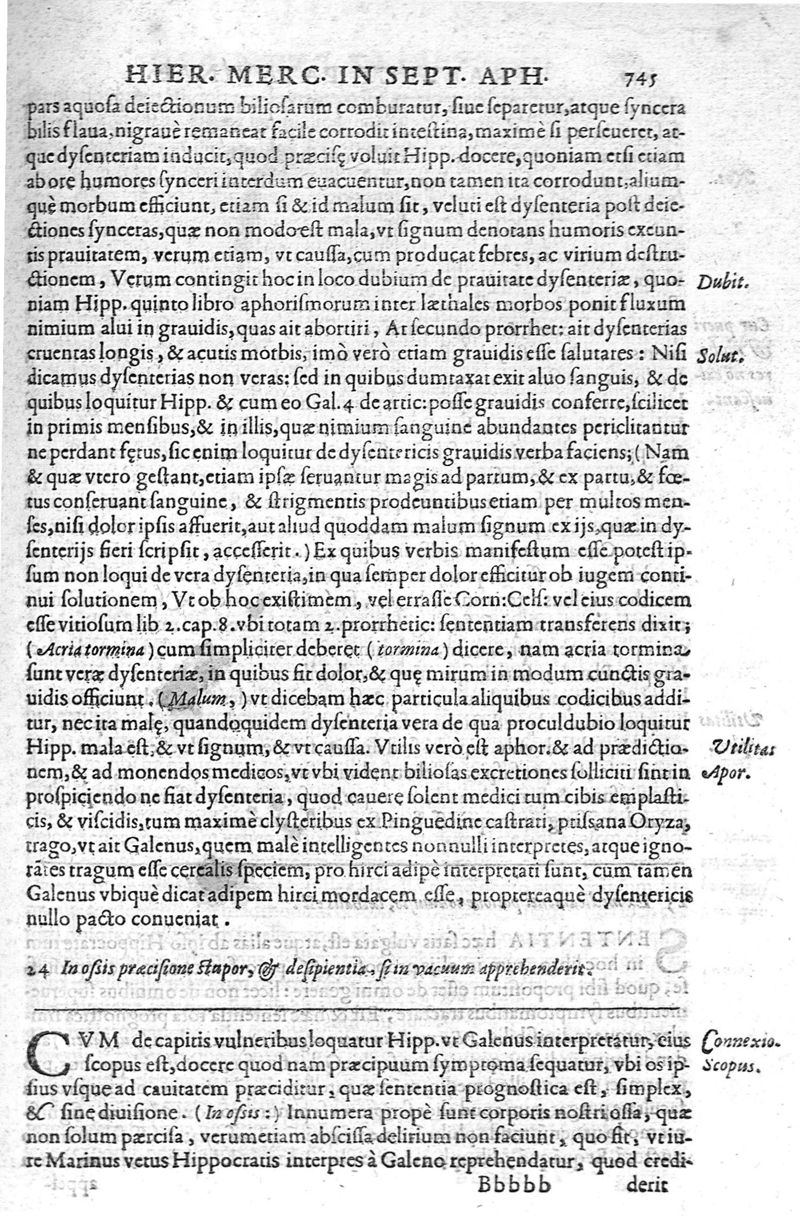 HIER. MERC. IN SEPT. APH. 745
pars aquosa deiectionum biliosarum comburatur, siue separetur, atque syncera
bilis flaua, nigrauè remaneat facile corrodit intestina, maximè si perseueret, at-
que dysenteriam inducit, quod præcisę voluit Hipp. docere, quoniam etsi etiam
ab ore humores synceri interdum euacuentur, non tamen ita corrodunt, alium-
què morbum efficiunt, etiam si & id malum sit, veluti est dysenteria post deie-
ctiones synceras, quæ non modo est mala, vt signum denotans humoris exeun-
tis prauitatem, verum etiam, vt caussa, cum producat febres, ac virium destru-
ctionem, Verum contingit hoc in loco dubium de prauitate dysenteriæ, quo- Dubit.
niam Hipp. quinto libro aphorismorum inter læthales morbos ponit fluxum
nimium alui in grauidis, quas ait abortiri, At secundo prorrhet: ait dysenterias
cruentas longis, & acutis morbis, imò verò etiam grauidis esse salutares: Nisi Solut.
dicamus dysenterias non veras: sed in quibus dumtaxat exit aluo sanguis, & de
quibus loquitur Hipp. & cum eo Gal. 4 de artic: posse grauidis conferre, scilicet
in primis mensibus, & in illis, quæ nimium sanguine abundantes periclitantur
ne perdant fętus, sic enim loquitur de dysentericis grauidis verba faciens; (Nam
& quæ vtero gestant, etiam ipsæ seruantur magis ad partum, & ex partu, & fœ-
tus conseruant sanguine, & strigmentis prodeuntibus etiam per multos men-
ses, nisi dolor ipsis affuerit, aut aliud quoddam malum signum ex ijs, quæ in dy-
senterijs fieri scripsit, accesserit.) Ex quibus verbis manifestum esse potest ip-
sum non loqui de vera dysenteria, in qua semper dolor efficitur ob iugem conti-
nui solutionem, Vt ob hoc existimem, vel errasse Corn: Cels: vel eius codicem
esse vitiosum lib 2. cap. 8. vbi totam 2. prorrhetic: sententiam transferens dixit;
(Acria tormina) cum simpliciter deberet (tormina) dicere, nam acria tormina
sunt veræ dysenteriæ, in quibus fit dolor, & quę mirum in modum cunctis gra-
uidis officiunt. (Malum,) vt dicebam hæc particula aliquibus codicibus addi-
tur, nec ita malę, quandoquidem dysenteria vera de qua proculdubio loquitur
Hipp. mala est, & vt signum, & vt caussa. Vtilis verò est aphor. & ad prædictio- Utilitas
nem, & ad monendos medicos, vt vbi vident biliosas excretiones solliciti sint in Apor.
prospiciendo ne fiat dysenteria, quod cauere solent medici tum cibis emplasti-
cis, & viscidis, tum maximè clysteribus ex Pinguedine castrati, ptissana Oryza,
trago, vt ait Galenus, quem malè intelligentes nonnulli interpretes, atque igno-
rātes tragum esse cerealis speciem, pro hirci adipè interpretati sunt, cum tamen
Galenus vbiquè dicat adipem hirci mordacem esse, proptereaquè dysentericis
nullo pacto conueniat.
24 In ossis præcisione stupor, & desipientia, si in vacuum apprehenderit.
CVM de capitis vulneribus loquatur Hipp. vt Galenus interpretatur, eius Connexio.
scopus est, docere quod nam præcipuum symptoma sequatur, vbi os ip- Scopus.
sius vsque ad cauitatem præciditur, quæ sententia prognostica est, simplex,
& sine diuisione. (In ossis:) Innumera propè sunt corporis nostri ossa, quæ
non solum pærcisa, verumetiam abscissa delirium non faciunt, quo fit, vt iu-
re Marinus vetus Hippocratis interpres à Galeno reprehendatur, quod credi-
Bbbbb derit